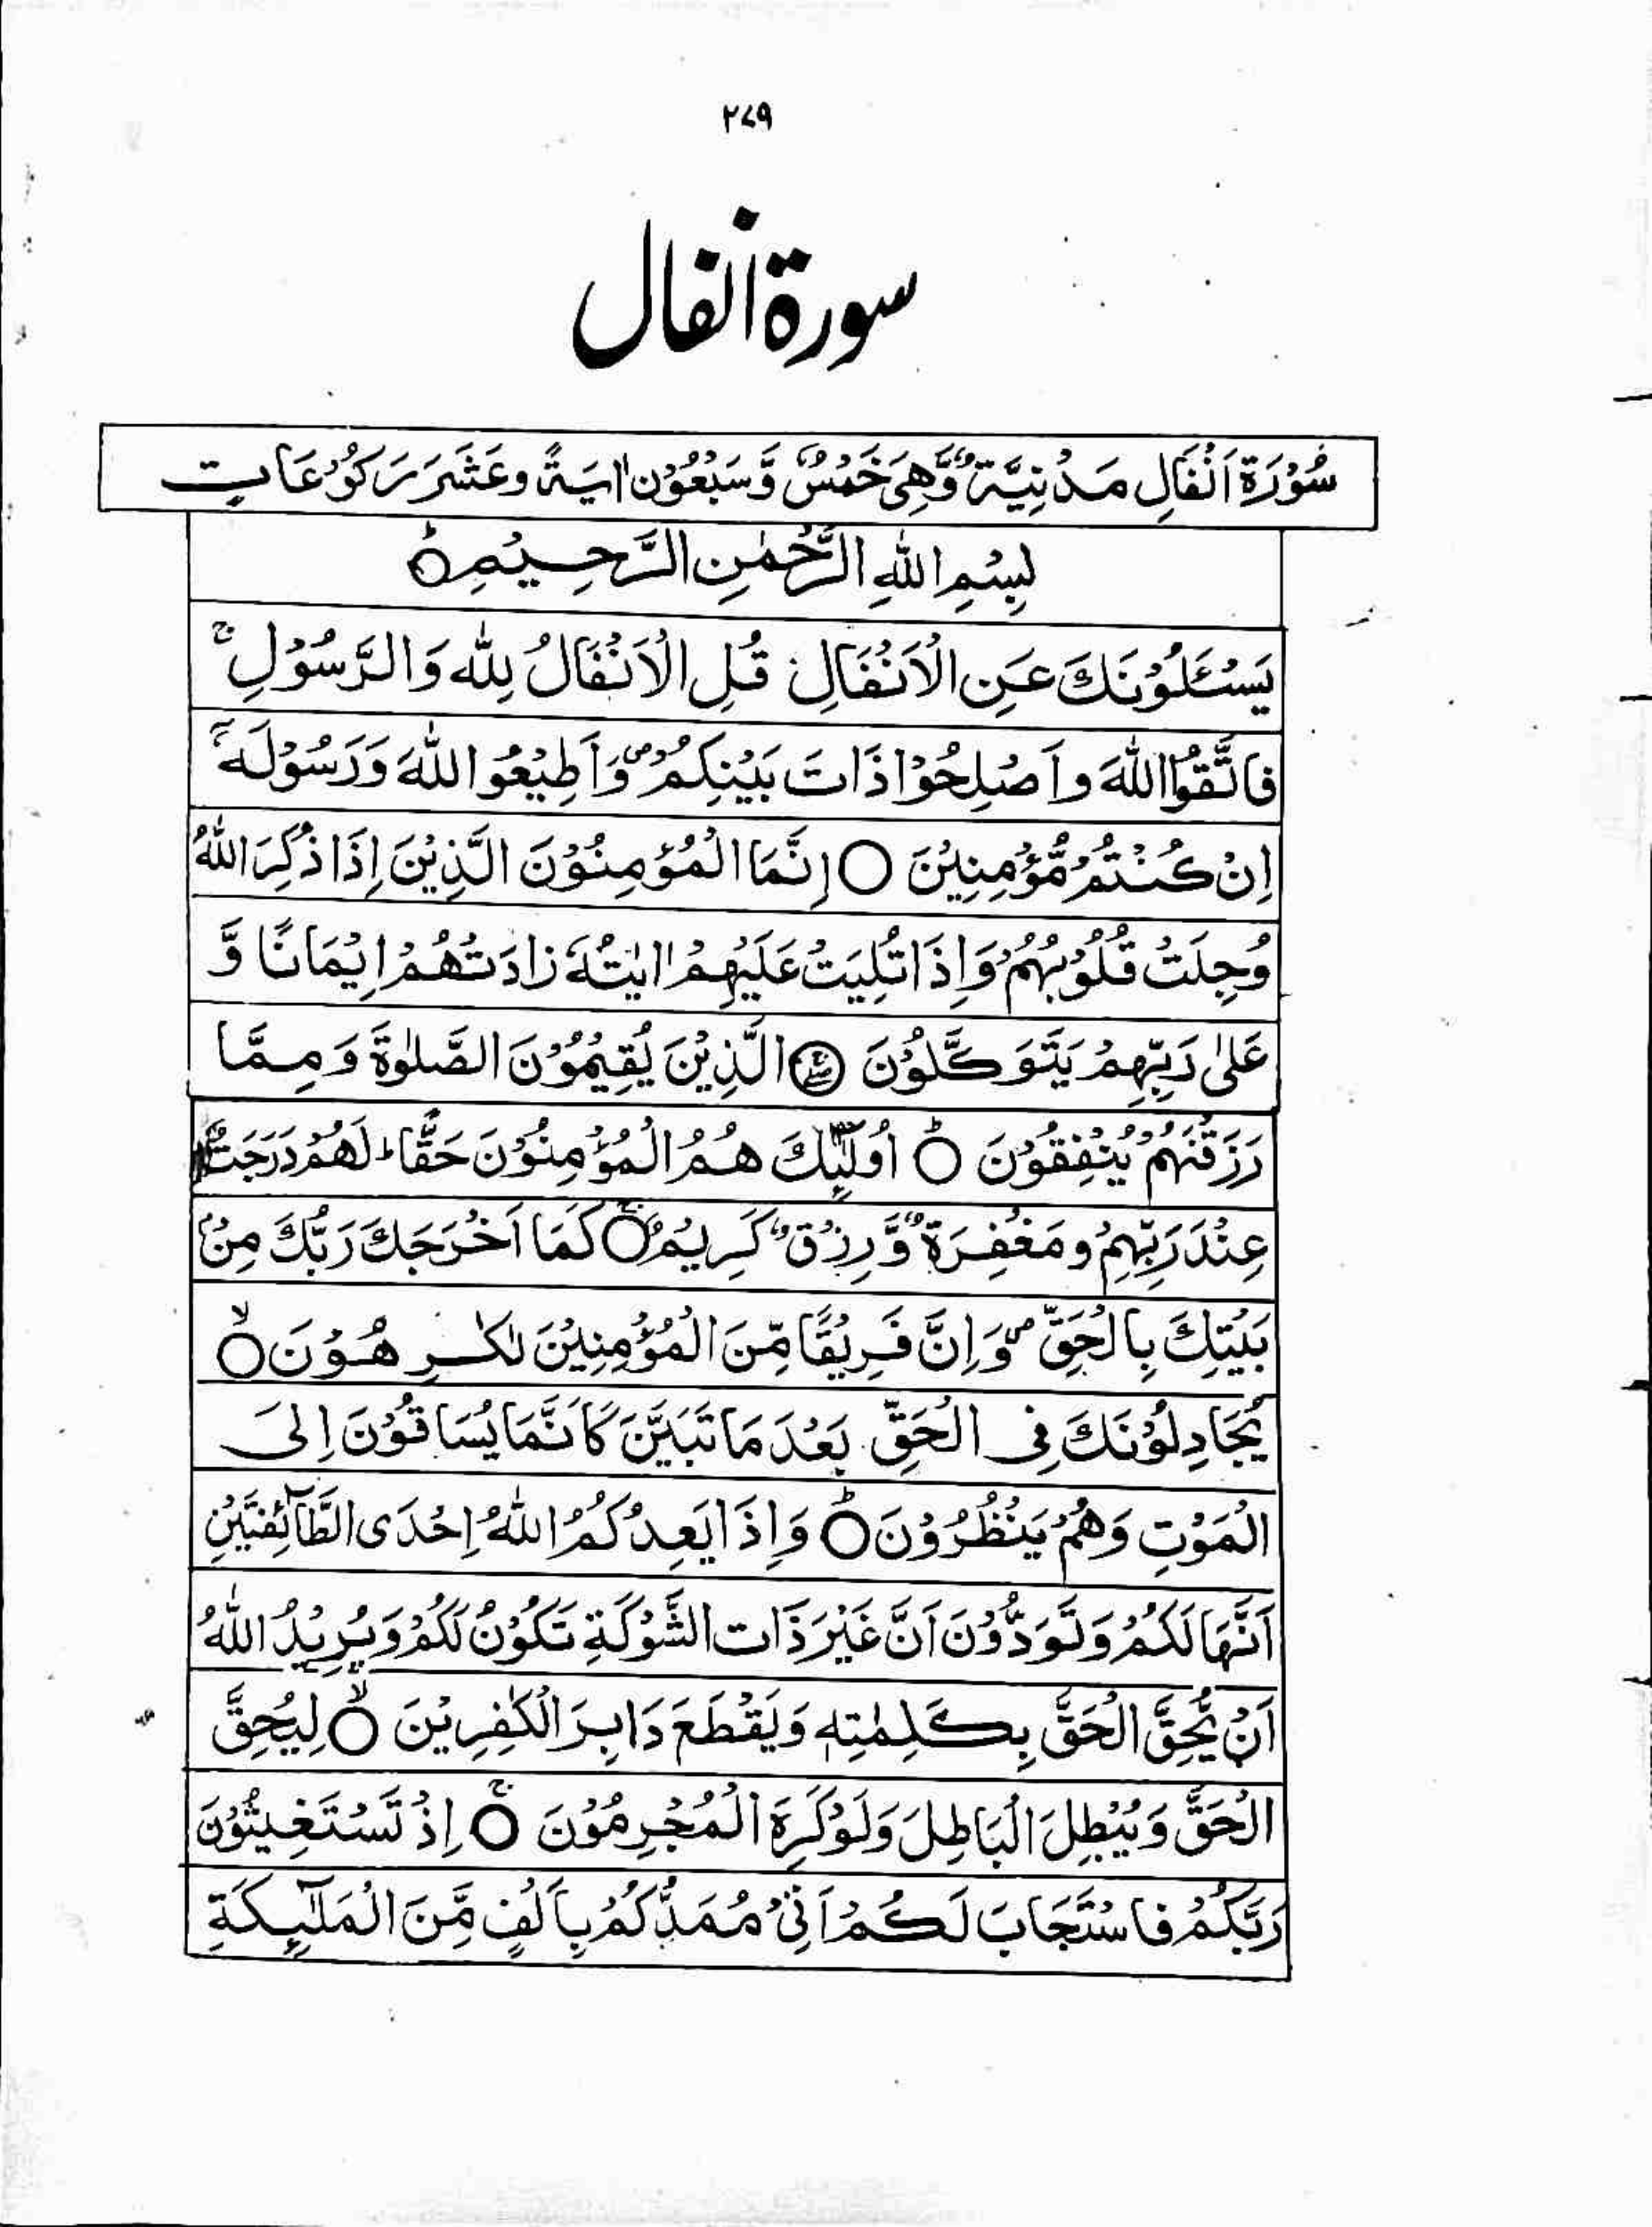 ۲۷۹
سورۃ انفال
سُوْرَةُ اَنْفَالِ مَدْنِيَّةٌ وَّهِىَ خَمْسٌ وَّسَبْعُوْنَ اٰيَةً وعَشَرَ رَكُوْعَاتٍ
بِسْمِ اللّٰهِ الرَّحْمٰنِ الرَّحِيْمِ ○ؕ
يَسْئَلُوْنَكَ عَنِ الْاَنْفَالِ ؕ قُلِ الْاَنْفَالُ لِلّٰهِ وَالرَّسُوْلِ ۚ
فَاتَّقُوا اللّٰهَ واَصْلِحُوْا ذَاتَ بَيْنِكُمْ ۪ وَاَطِيْعُوا اللّٰهَ وَرَسُوْلَهٗ
اِنْ كُنْتُمْ مُّؤْمِنِيْنَ ○ اِنَّمَا الْمُؤْمِنُوْنَ الَّذِيْنَ اِذَا ذُكِرَ اللّٰهُ
وُجِلَتْ قُلُوْبُهُمْ وَاِذَا تُلِيَتْ عَلَيْهِمْ اٰيٰتُهٗ زَادَتْهُمْ اِيْمَانًا وَّ
عَلٰى رَبِّهِمْ يَتَوَكَّلُوْنَ ○ الَّذِيْنَ يُقِيْمُوْنَ الصَّلٰوةَ وَمِمَّا
رَزَقْنٰهُمْ يُنْفِقُوْنَ ○ؕ اُولٰٓئِكَ هُمُ الْمُؤْمِنُوْنَ حَقًّا ؕ لَهُمْ دَرَجٰتٌ
عِنْدَ رَبِّهِمْ ومَغْفِرَةٌ وَّرِزْقٌ كَرِيْمٌ ○ۚ كَمَا اَخْرَجَكَ رَبُّكَ مِنْۢ
بَيْتِكَ بِالْحَقِّ ۪ وَاِنَّ فَرِيْقًا مِّنَ الْمُؤْمِنِيْنَ لَكٰرِهُوْنَ ○ۙ
يُجَادِلُوْنَكَ فِى الْحَقِّ بَعْدَ مَا تَبَيَّنَ كَاَنَّمَا يُسَاقُوْنَ اِلَى
الْمَوْتِ وَهُمْ يَنْظُرُوْنَ ○ؕ وَاِذَا يَعِدُكُمُ اللّٰهُ اِحْدَى الطَّآئِفَتَيْنِ
اَنَّهَا لَكُمْ وَتَوَدُّوْنَ اَنَّ غَيْرَ ذَاتِ الشَّوْكَةِ تَكُوْنُ لَكُمْ وَيُرِيْدُ اللّٰهُ
اَنْ يُّحِقَّ الْحَقَّ بِكَلِمٰتِهٖ وَيَقْطَعَ دَابِرَ الْكٰفِرِيْنَ ○ۙ لِيُحِقَّ
الْحَقَّ وَيُبْطِلَ الْبَاطِلَ وَلَوْ كَرِهَ الْمُجْرِمُوْنَ ○ۚ اِذْ تَسْتَغِيْثُوْنَ
رَبَّكُمْ فَاسْتَجَابَ لَكُمْ اَنِّىْ مُمِدُّكُمْ بِاَلْفٍ مِّنَ الْمَلٰٓئِكَةِ